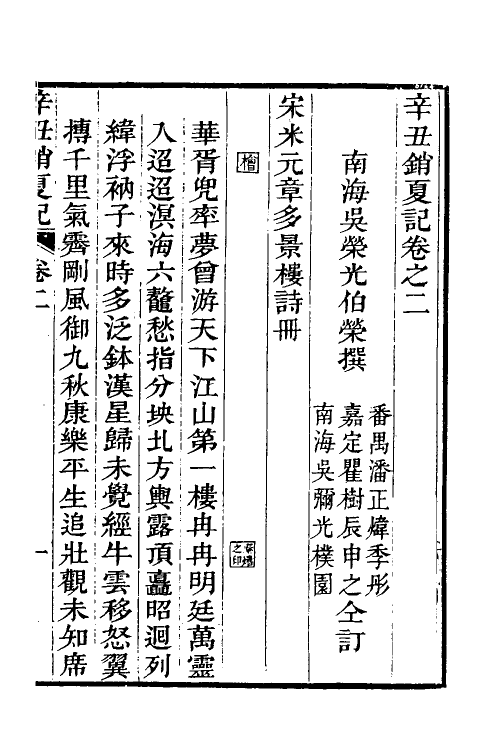 辛丑銷夏記卷之二
南海吳榮光伯榮撰
番禺潘正煒季彤
嘉定瞿樹辰申之仝訂
南海吳彌光樸園
宋米元章多景樓詩冊
檜
之印
華胥兜率夢曾游天下江山第一樓冉冉明廷萬靈
入迢迢溟海六鼇愁指分坱圠方輿露頂矗昭迴列
緯浮衲子來時多泛鉢漢星歸未覺經牛雲移怒翼
搏千里氣霽剛風御九秋康樂平生追壯觀未知席
辛丑銷夏記
卷二
一